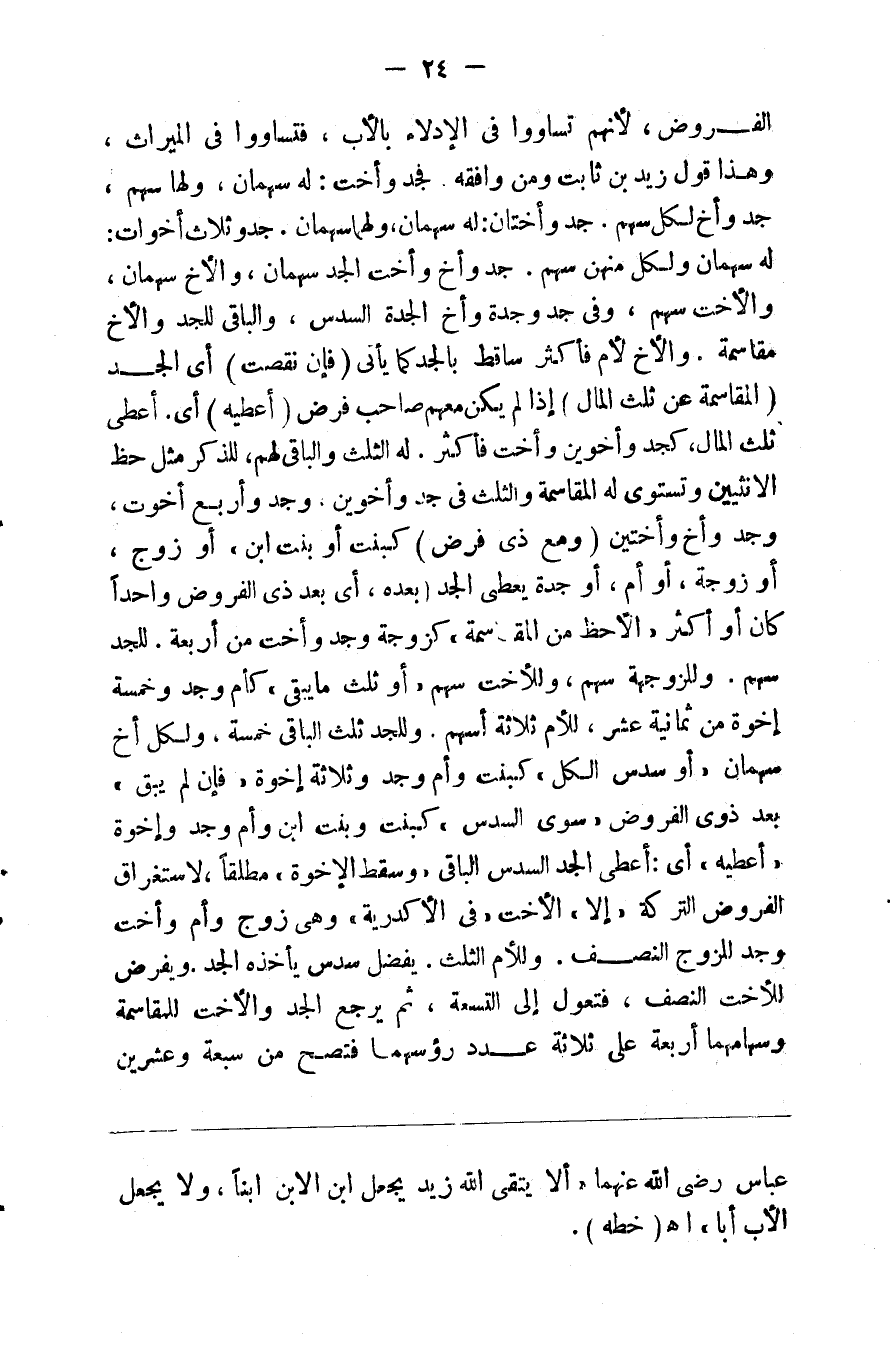 — ٢٤ —
الفـــروض، لأنهم تساووا فى الإدلاء بالأب ، فتساووا فى الميراث ،
وهـذا قول زيد بن ثابت ومن وافقه . فجد وأخت : له سهمان ، ولها سهم ،
جد وأخ لـكل سهم . جد وأختان: له سهمان، ولها سهمان . جد وثلاث أخوات:
له سهمان ولـكل منهن سهم . جد وأخ وأخت الجد سهمان ، والأخ سهمان ،
والأخت سهم ، وفى جد وجدة وأخ الجدة السدس ، والباقى للجد والأخ
مقاسمة . والأخ لأم فأكثر ساقط بالجد كما يأتى ( فإن نقصت ) أى الجـــد
( المقاسمة عن ثلث المال ) إذا لم يـكن معهم صاحب فرض ( أعطيه ) أى. أعطى
ثلث المال، كجد وأخوين وأخت فأكثر . له الثلث والباقى لهم، للذكر مثل حظ
الانثيين وتستوى له المقاسمة والثلث فى جد وأخوين . وجد وأربـع أخوت ،
وجد وأخ وأختين ( ومع ذى فرض ) كبنت أو بنت ابن ، أو زوج ،
أو زوجة ، أو أم ، أو جدة يعطى الجد ( بعده ، أى بعد ذى الفروض واحداً
كان أو أكثر « الأحظ من المقـاسمة » كزوجة وجد وأخت من أربعة . للجد
سهم . وللزوجهة سهم ، وللأخت سهم « أو ثلث مايبقى » كأم وجد وخمسة
إخوة من ثمانية عشر ، للأم ثلاثة أسهم . وللجد ثلث الباقى خمسة . ولـكل أخ
سهمان « أو سدس الـكل » كبنت وأم وجد وثلاثة إخوة « فإن لم يبق »
بعد ذوى الفروض « سوى السدس » كبنت وبنت ابن وأم وجد وإخوة
« أعطيه » أى : أعطى الجد السدس الباقى « وسقط الإخوة » مطلقاً ، لاستغراق
الفروض التركة « إلا » الأخت « فى الأكدرية » وهى زوج وأم وأخت
وجد للزوج النصـــف . وللأم الثلث . يفضل سدس يأخذه الجد . ويفرض
للأخت النصف ، فتعول إلى التسعة ، ثم يرجع الجد والأخت للمقاسمة
وسهامهما أربعة على ثلاثة عـــدد رؤسهمـا فتصـح من سبعة وعشرين
عباس رضى الله عنهما « ألا يتقى الله زيد يجعل ابن الابن ابناً ، ولا يجعل
الأب أبا » ا ه ( خطه ) .